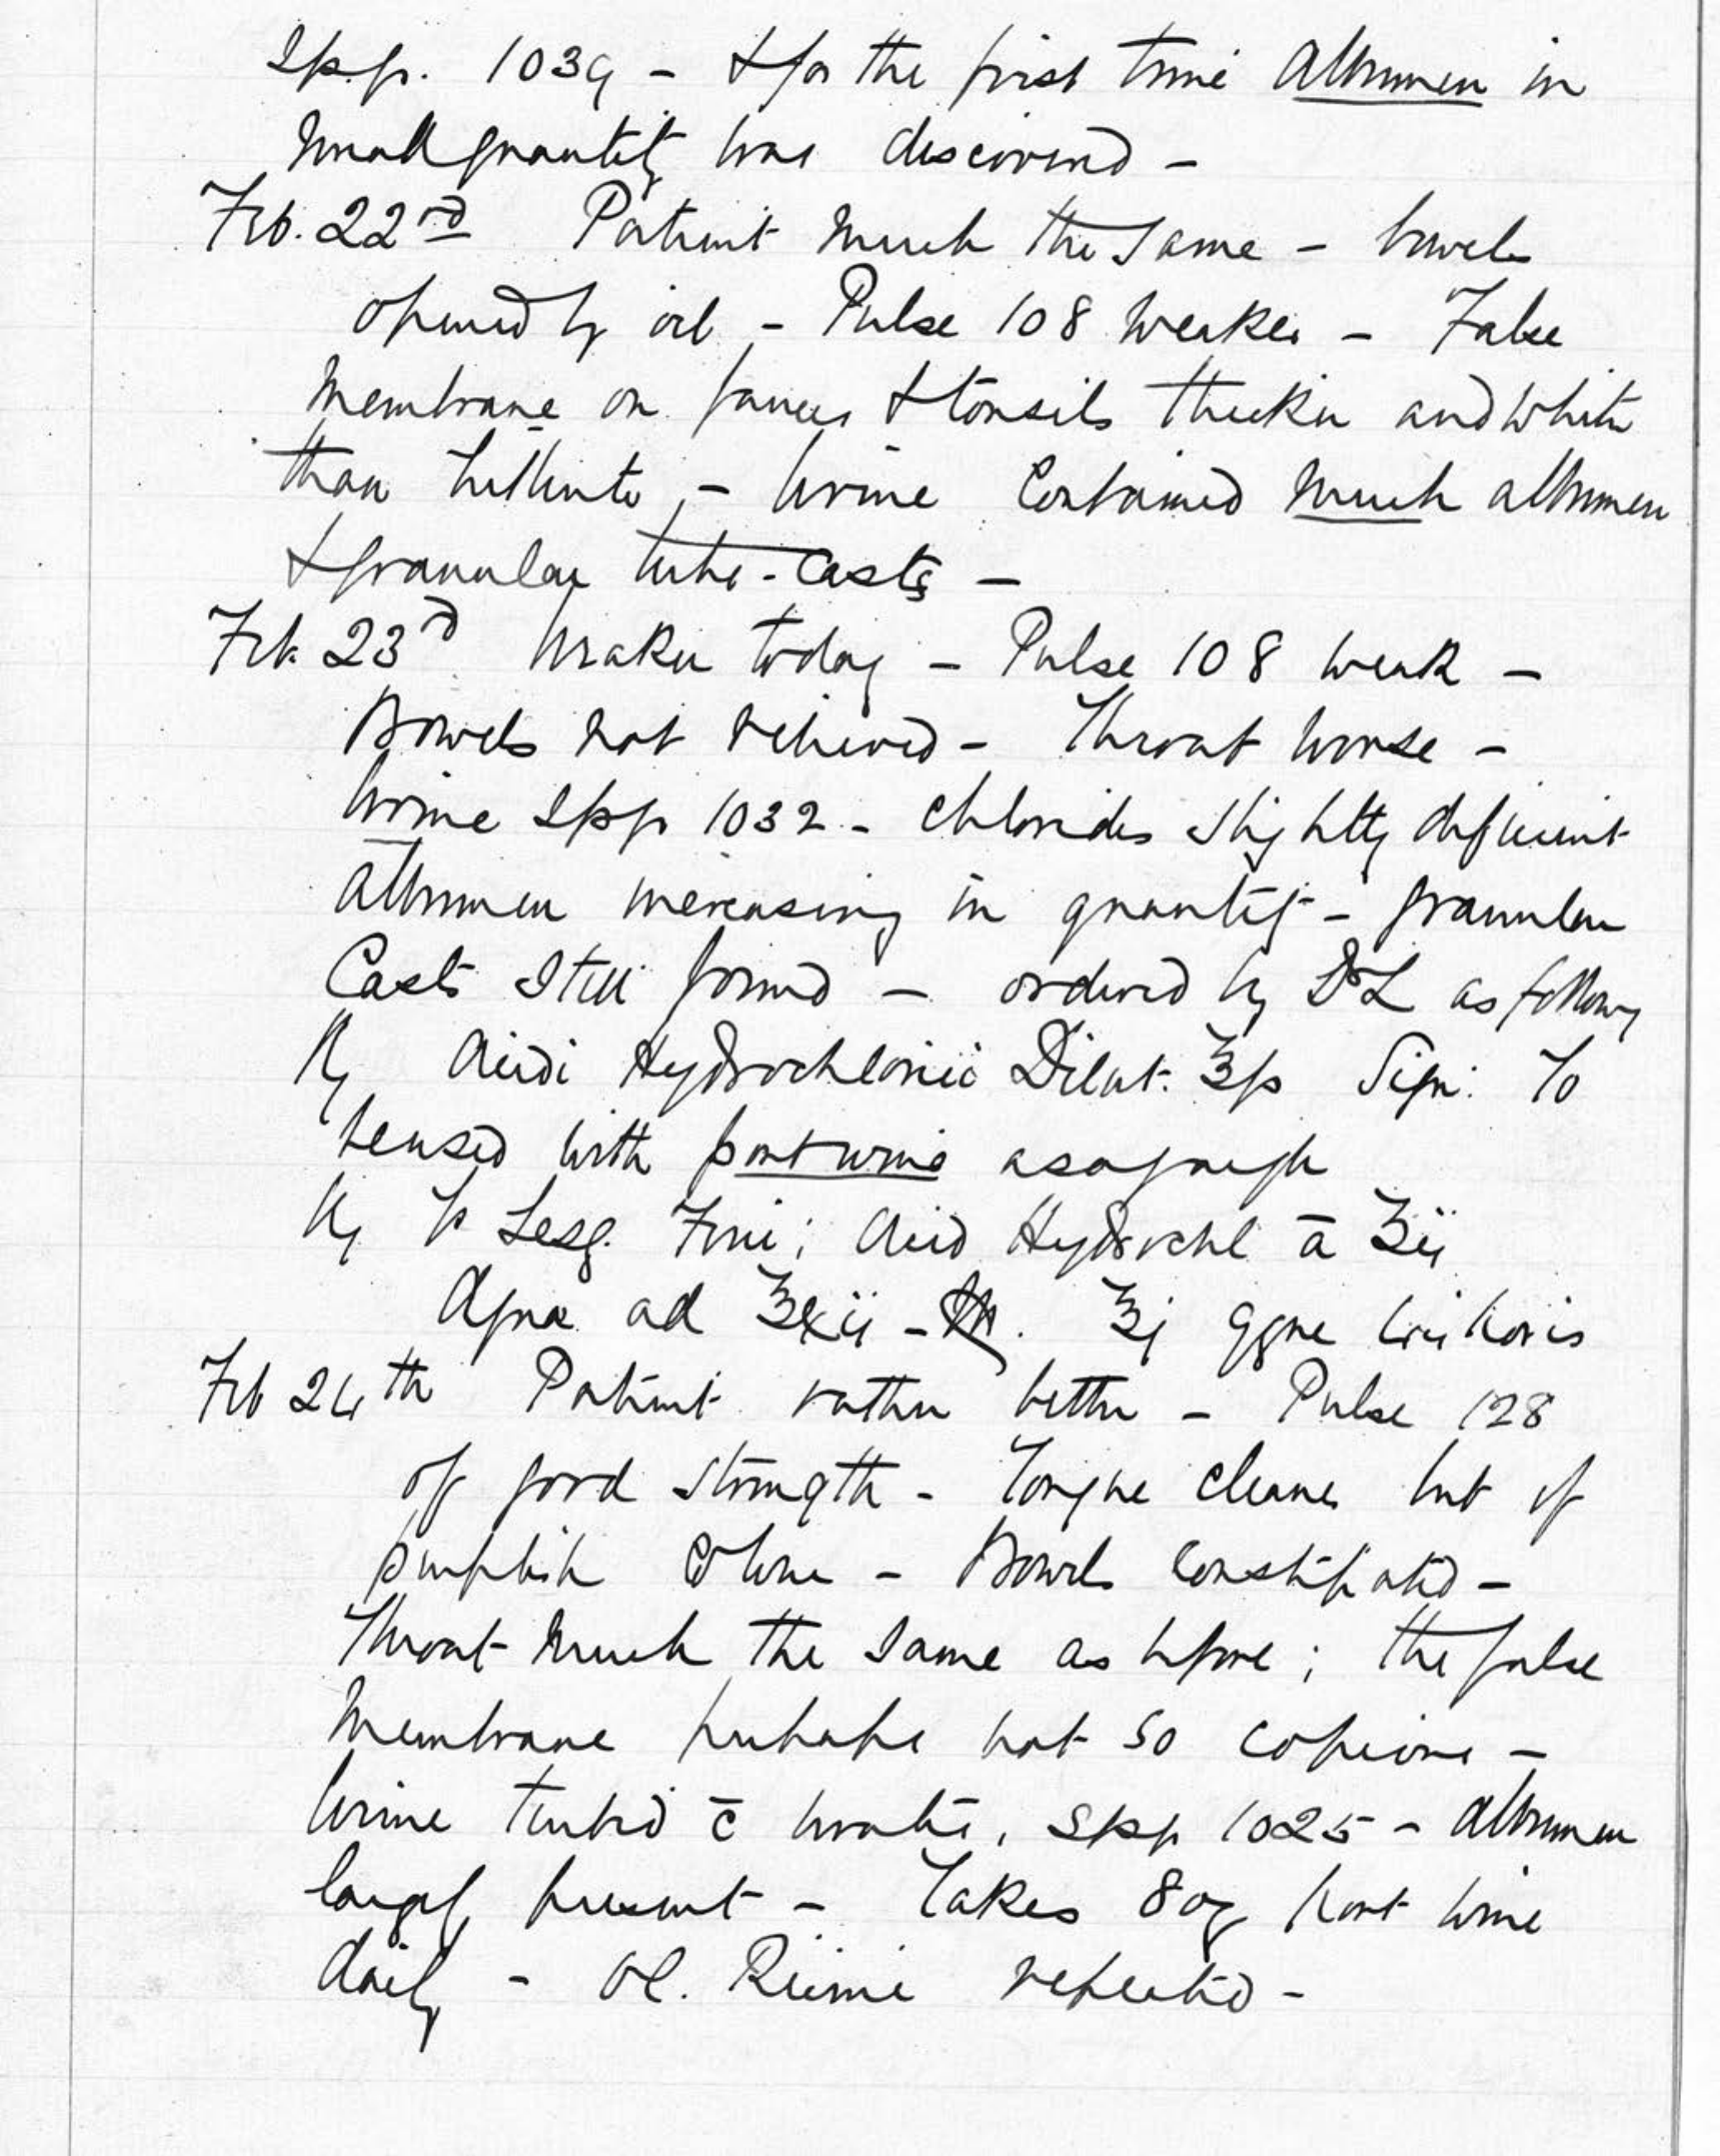 Sp.gr. 1039 - & for the first time Albumen in
small quantity was discovered -
Feb. 22nd Patient much the same - bowels
opened by oil - Pulse 108 weaker - False
Membrane on fauces & tonsils thicker and whiter
than hitherto, - Urine contained much albumen
& granular tube-casts -
Feb. 23d Weaker today - Pulse 108 weak -
Bowels not relieved - Throat worse -
Urine Spgr 1032 - chlorides slightly deficient
Albumen increasing in quantity - granular
Casts still found - ordered by Dr L as follows
℞ Acidi Hydrochlorici Dilut. ℥ss Sign: To
be used with port wine as a gargle
℞ Sesq. Ferri; Acid Hydrochl ā ʒii
Aqua ad ℥xii - ℥j qque horis
Feb 24th Patient rather better - Pulse 128
of good strength - Tongue cleaner but of
purplish colour - Bowels constipated -
Throat much the same as before; the false
Membrane perhaps not so copious -
Urine turbid c̄ urates, Spgr 1025 - Albumen
largely present - Takes 8 oz Port wine
daily - Ol. Ricini repeated -